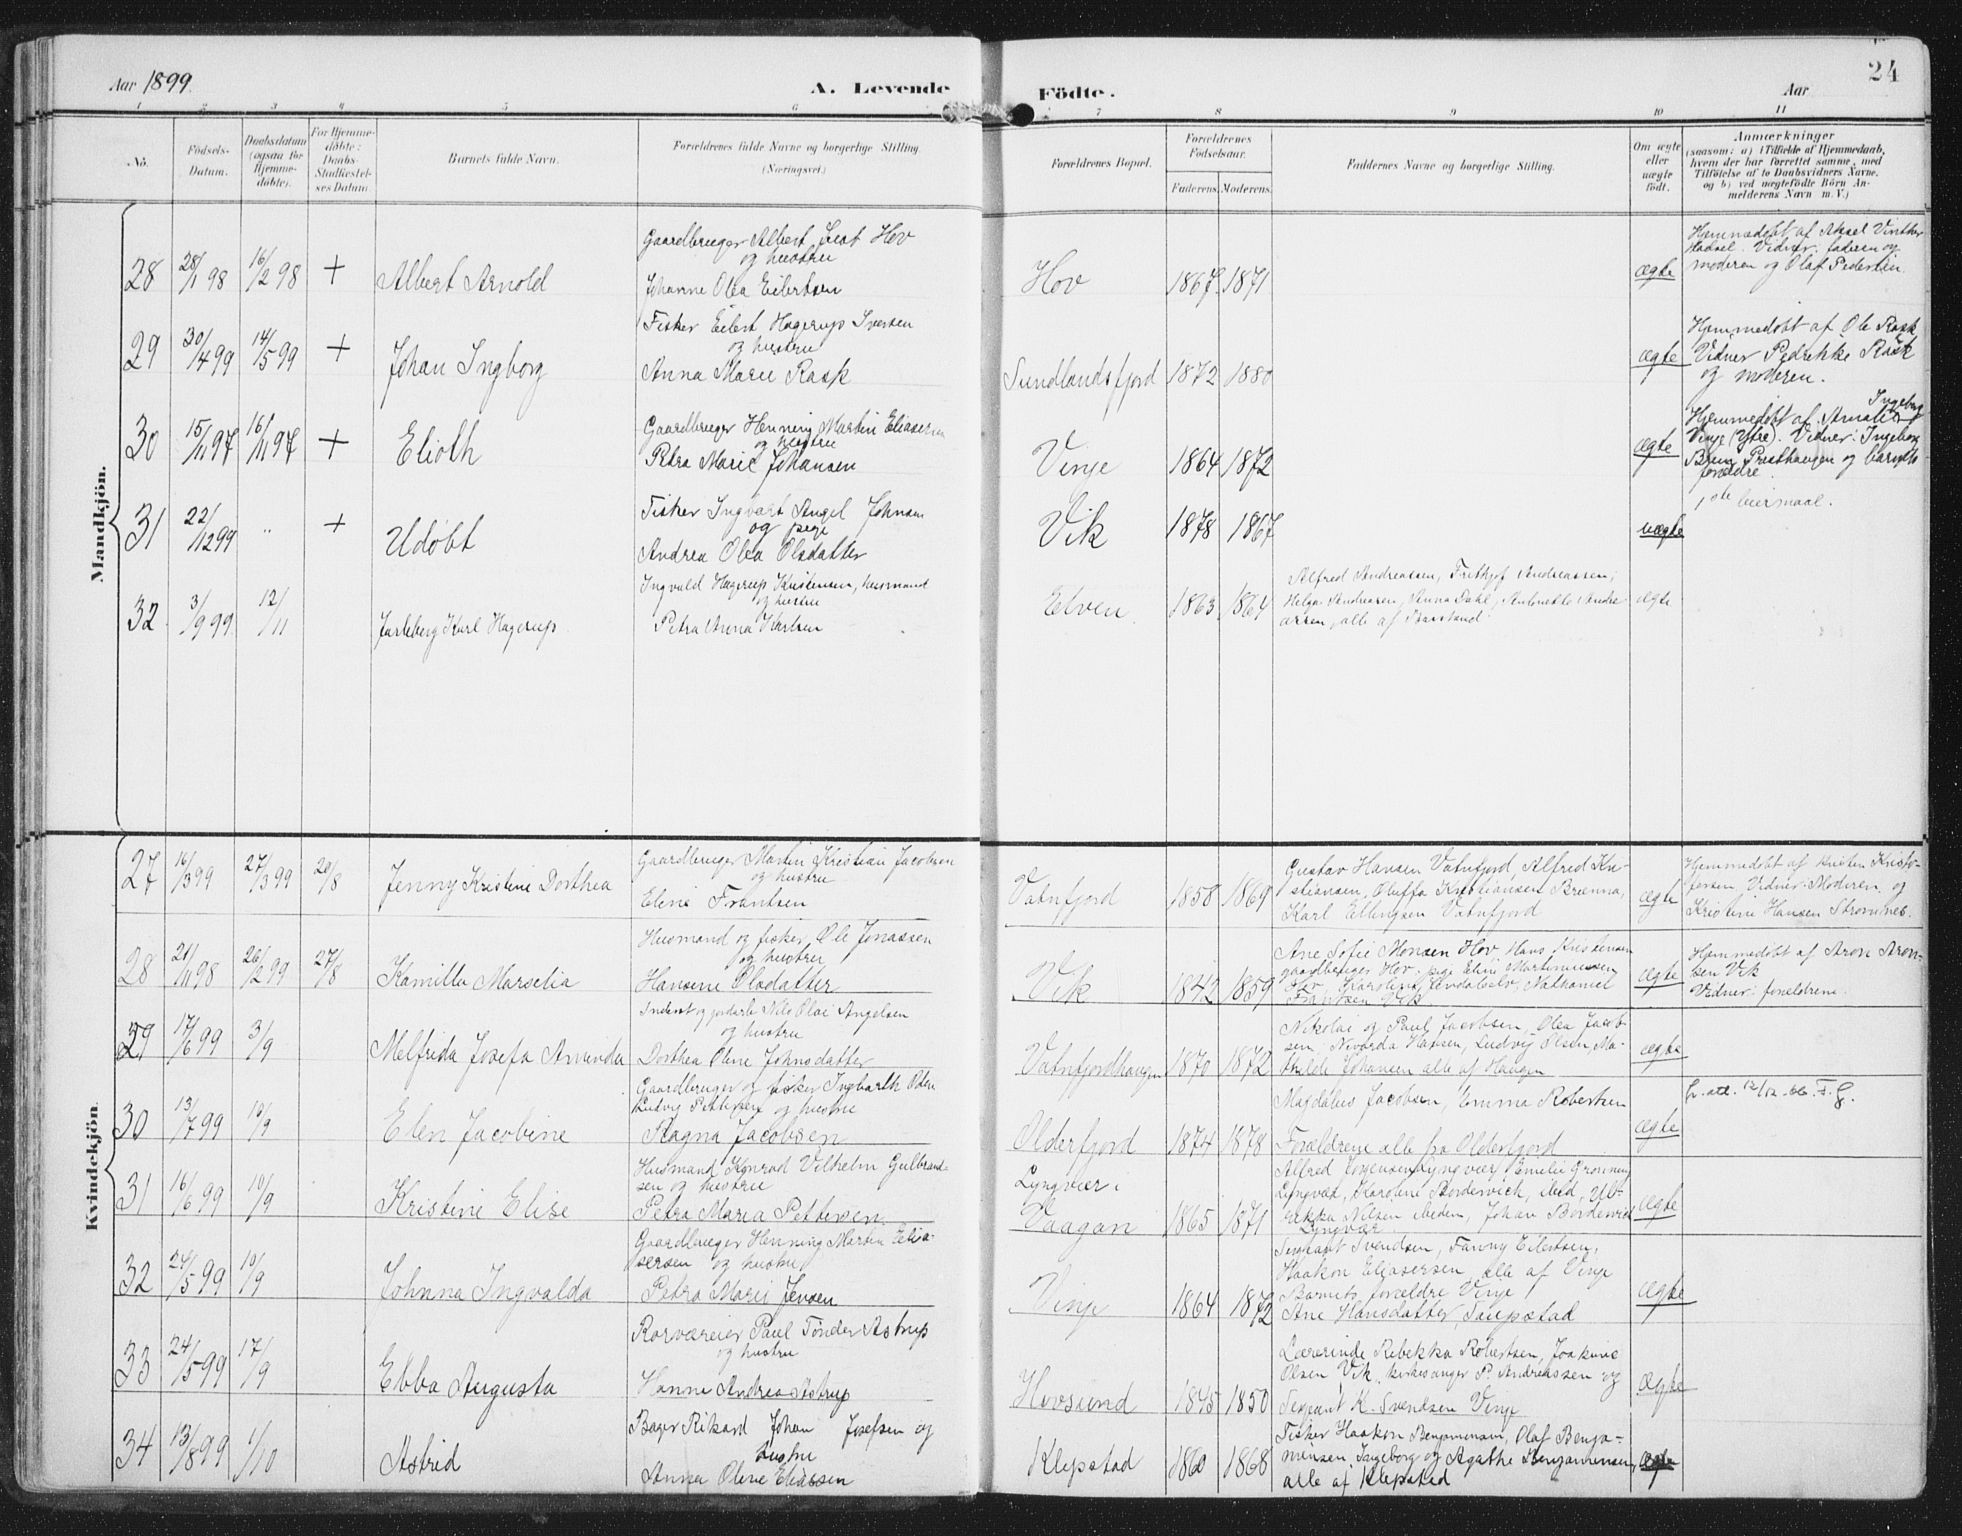 Aar 1899.
A. Levende
Födte.
Aar
24
1 2 3 4 5 6 7 8 9 10 11
No.
Födsels-
Datum.
Daabsdatum
(ogsaa for
Hjemme-
döbte).
For Hjemme-
döbte:
Daabs-
Stadfæstel-
ses Datum.
Barnets fulde Navn.
Forældrenes fulde Navne og borgerlige Stilling.
(Næringsvei.)
Forældrenes Bopæl.
Forældrenes
Födselsaar.
Faderens. Moderens.
Faddernes Navne og borgerlige Stilling.
Om ægte
eller
uægte
födt.
Anmærkninger
(saasom: a) i Tilfælde af Hjemmedaab,
hvem der har forrettet samme, med
Tilföielse af to Daabsvidners Navne,
og b) ved uægtefödte Börn An-
melderens Navn m. V.)
Mandkjön.
28 28/1 98 16/2 98 + Albert Arnold
Gaardbruger Albert Hov
og hustru
Johanne Olea Eilertsen
Hov 1867 1871 ægte
Hjemmedøbt af Aksel Vinther
Hadsel. Vidner: faderen og
moderen og Olaf Pedersen.
29 30/4 99 14/5 99 + Johan Ingborg
Fisker Eilert Hagerup Iversen
og hustru
Anna Marie Rask
Sundlandsfjord 1872 1880 ægte
Hjemmedøbt af Ole Rask
Vidner Pedrikke Rask
og moderen.
30 15/11 97 16/11 97 + Elioth
Gaardbruger Henning Martin Eliasersen
og hustru
Petra Marie Johansen
Vinje 1864 1872 ægte
Ingeborg
Hjemmedøbt af
Vinje (Ytre). Vidner: Ingeborg
Brun Presthaugen og barnets
forældre.
31 22/12 99 " + Udøbt
Fisker Ingvart Angel Johnsen
og pige
Andrea Olea Olsdatter
Vik 1878 1867 uægte
1ste leiermaal.
32 3/9 99 12/11 Jarleberg Karl Hagerup
Ingvald Hagerup Kristensen, husmand
og hustru
Petra Anna Karlsen
Elven 1863 1864
Alfred Andreassen, Frithjof Andreassen,
Helga Andreasen, Anna Dahl, Antonette Andre
assen, alle af
ægte
Kvindekjön.
27 16/3 99 27/3 99 20/8 Jenny Kristine Dorthea
Gaardbruger Martin Kristian Jacobsen
og hustru
Eline Frantsen
Vatnfjord 1858 1869
Gustav Hansen Vatnfjord, Alfred Kri-
stiansen, Oluffa Kristiansen Brenna,
Karl Ellingsen Vatnfjord
ægte
Hjemmedøbt af Kristen Kristo-
fersen, Vidner: Moderen, og
Kristine Hansen Strømnes.
28 21/11 98 26/2 99 27/8 Kamilla Marselia
Husmand og fisker Ole Jonassen
og hustru
Hansine Olsdatter
Vik 1842 1859
Ane Sofie Monsen Hov, Hans Kristensen
gaardbruger Hov, pige Eline Martinussen
Hov, Karoline Nathaniel
Frantsen Vik
ægte
Hjemmedøbt af Aron Aron-
sen Vik
Vidner: forældrene.
29 17/6 99 3/9 Melfrida Josefa Aminda
Inderst og jordarb Nils Olai Angelsen
og hustru
Dorthea Oline Johnsdatter
Vatnfjordhaugen 1870 1872
Nikolai og Paul Jacobsen, Olea Jacob-
sen, Hansen, Ludvig Olsen, Ma-
thilde Johansen alle af Haugen
ægte
30 13/7 99 10/9 Elen Jacobine
Gaardbruger og fisker Ingbarth Oden
Ludvig Pettersen og hustru
Ragna Jacobsen
Olderfjord 1874 1878
Magdalus Jacobsen, Emma Robertsen
Forældrene alle fra Olderfjord
ægte
31 16/6 99 10/9 Kristine Elise
Husmand Konrad Vilhelm Gulbrand-
sen og hustru
Petra Maria Pettersen
Lyngvær i
Vaagan 1865 1871
Alfred Jørgensen Lyngvær, Emelie Grønning
Lyngvær, Karoline Bordevich, ibid, Ul-
rikka Nilsen ibidem, Johan Bordevich
Lyngvær
ægte
32 24/5 99 10/9 Johnna Ingvalda
Gaardbruger Henning Martin Elia-
sersen og hustru
Petra Marie Jensen
Vinje 1864 1872
Sergeant Svendsen, Fanny Eilertsen,
Haakon Eliasersen, alle af Vinje
Barnets forældre Vinje
Ane Hansdatter, Saupstad
ægte
33 24/5 99 17/9 Ebba Augusta
Rorværeier Paul Tønder Astrup
og hustru
Hanne Andrea Astrup
Hovsund 1845 1850
Lærerinde Rebekka Robertsen, Joakime
Olsen Vik, kirkesanger P. Andreassen og
Sergeant K. Svendsen Vinje
ægte
34 13/8 99 1/10 Astrid
Bager Rikard Johan Josefsen og
hustru
Anna Oline Eliassen
Klepstad 1860 1868
Fisker Haakon Benjaminsen, Olaf Benja-
minsen, Ingeborg og Agathe Benjaminsen,
alle af Klepstad
ægte